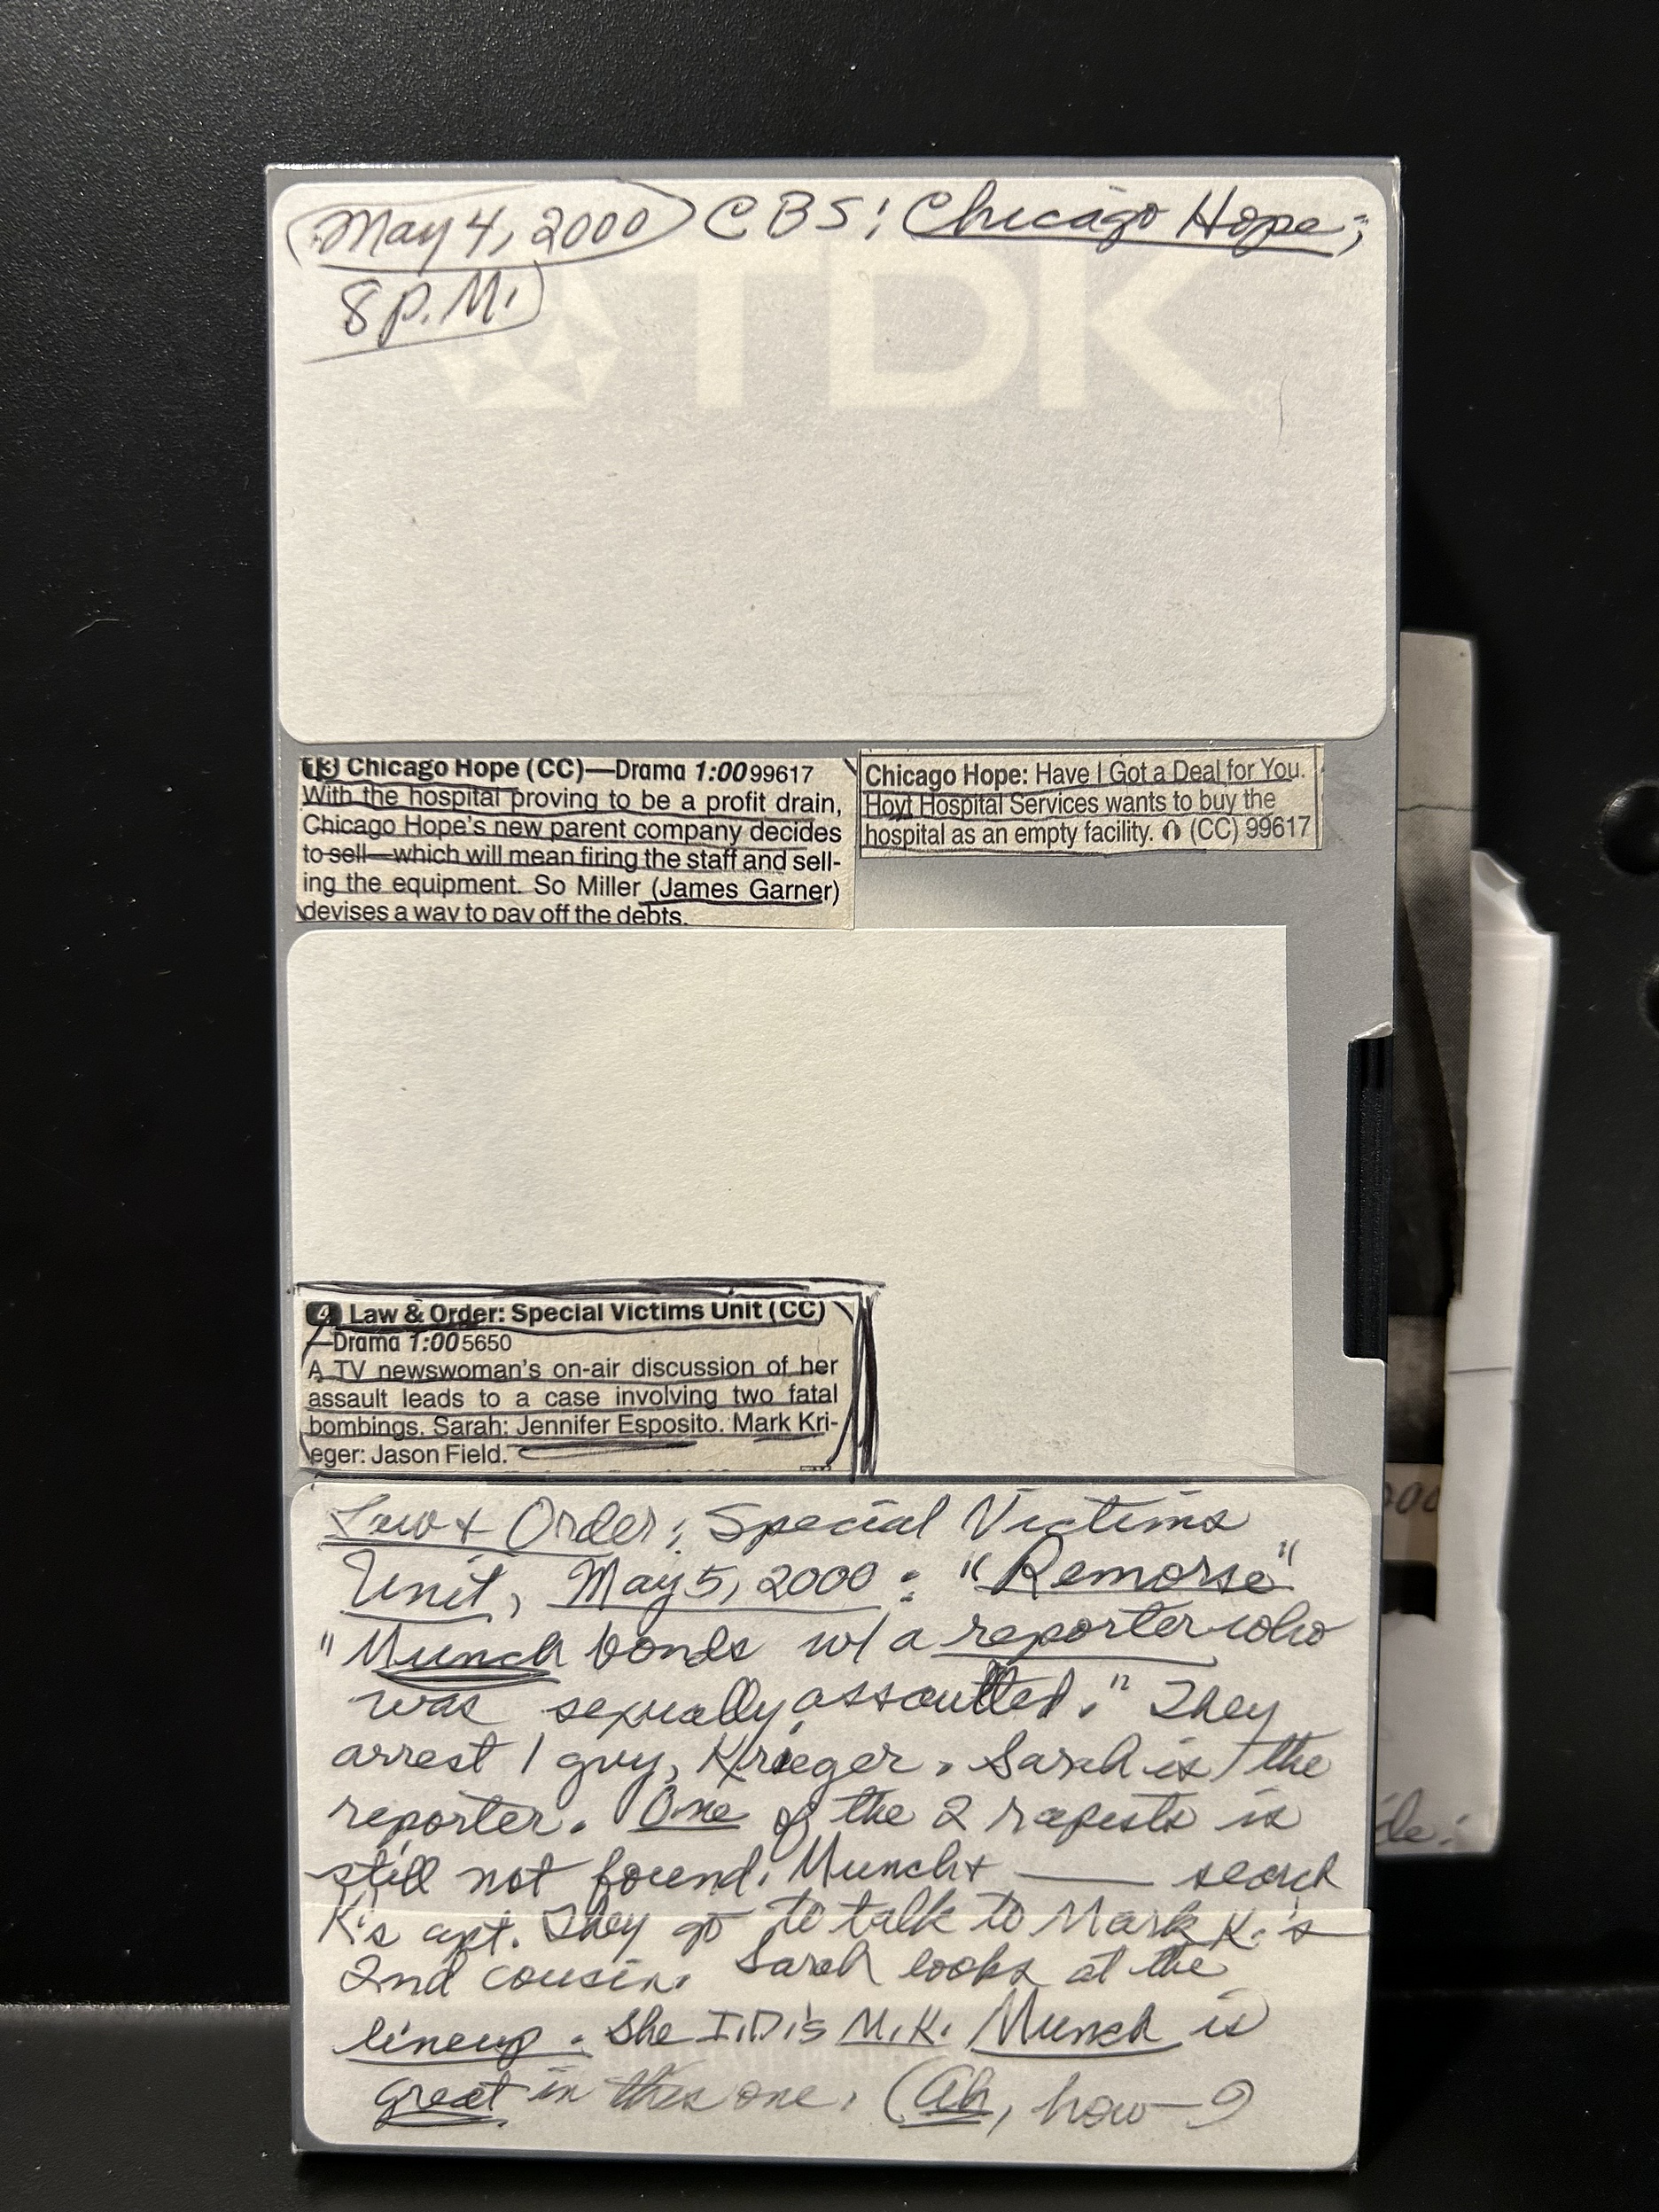 May 4, 2000 CBS: Chicago Hope;
8 P.M.
TDK
13 Chicago Hope (CC)—Drama 1:00 99617
With the hospital proving to be a profit drain,
Chicago Hope's new parent company decides
to sell—which will mean firing the staff and sell-
ing the equipment. So Miller (James Garner)
devises a way to pay off the debts.
Chicago Hope: Have I Got a Deal for You.
Hoyt Hospital Services wants to buy the
hospital as an empty facility. (CC) 99617
4 Law & Order: Special Victims Unit (CC)
—Drama 1:00 5650
A TV newswoman's on-air discussion of her
assault leads to a case involving two fatal
bombings. Sarah: Jennifer Esposito. Mark Kri-
eger: Jason Field.
Law & Order: Special Victims
Unit, May 5, 2000: "Remorse"
"Munch bonds w/ a reporter who
was sexually assaulted." They
arrest 1 guy, Krieger. Sarah is the
reporter. One of the 2 rapists is
still not found. Munch + ___ search
K's apt. They go to talk to Mark K.'s
2nd cousin. Sarah looks at the
lineup. She I.D.'s M.K. Munch is
great in this one. (Ah, how
de: